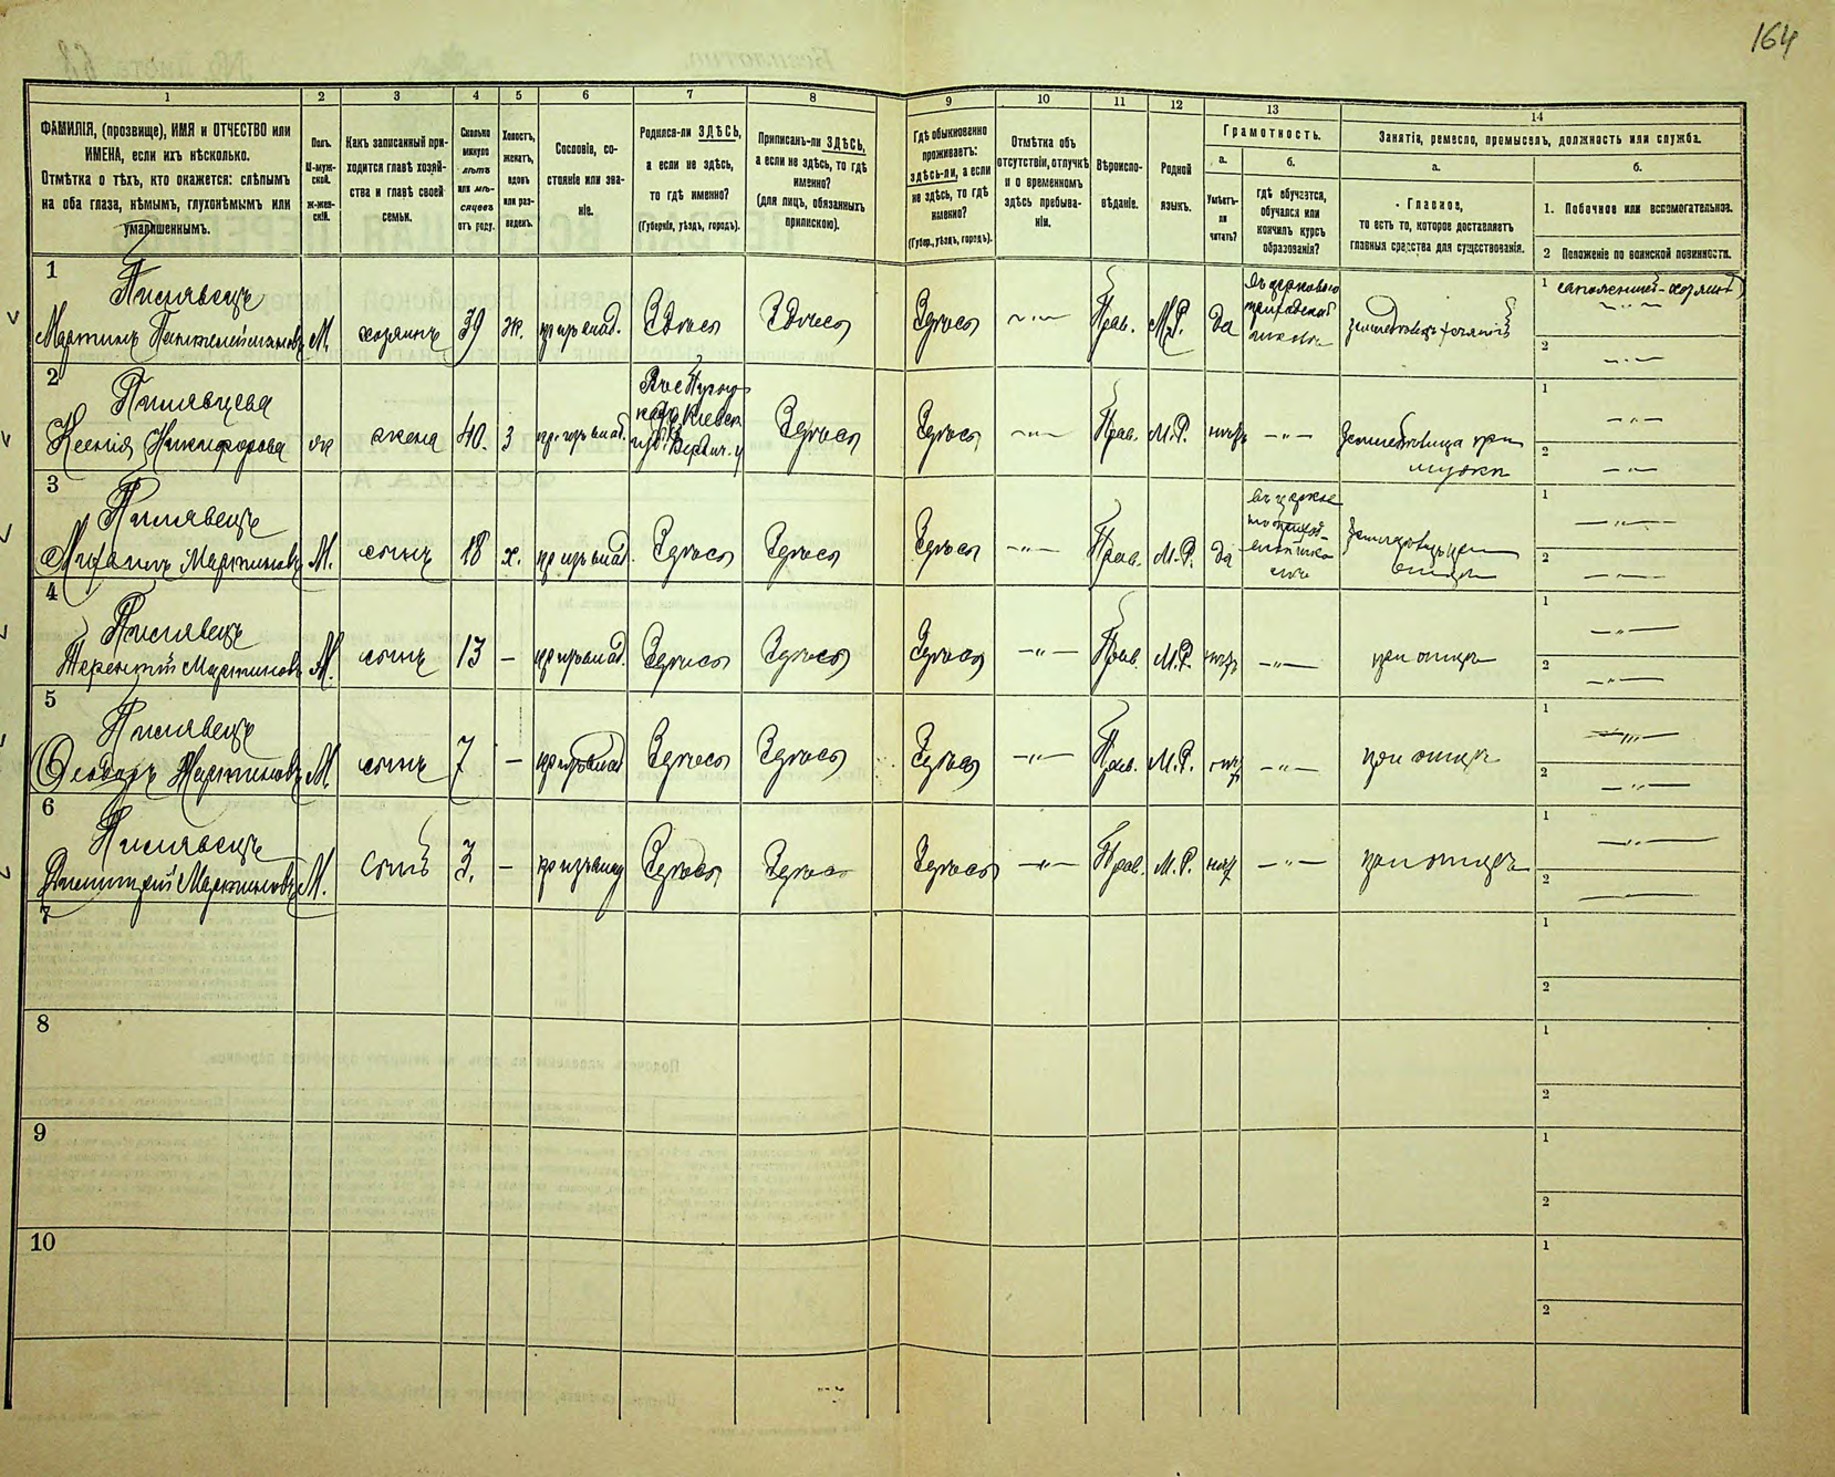 164
1
2
3
4
5
6
7
8
9
10
11
12
13
14
ФАМИЛІЯ, (прозвище), ИМЯ и ОТЧЕСТВО или
ИМЕНА, если ихъ нѣсколько.
Отмѣтка о тѣхъ, кто окажется: слѣпымъ
на оба глаза, нѣмымъ, глухонѣмымъ или
умалишеннымъ.
Полъ.
М-муж-
ской.
Ж-жен-
скій.
Какъ записанный при-
ходится главѣ хозяй-
ства и главѣ своей
семьи.
Сколько
минуло
лѣтъ
или мѣ-
сяцевъ
отъ роду.
Холостъ,
женатъ,
вдовъ
или раз-
веденъ.
Сословіе, со-
стояніе или зва-
ніе.
Родился-ли ЗДѢСЬ,
а если не здѣсь,
то гдѣ именно?
(Губернія, уѣздъ, городъ).
Приписанъ-ли ЗДѢСЬ,
а если не здѣсь, то гдѣ
именно?
(для лицъ, обязанныхъ
припискою).
Гдѣ обыкновенно
проживаетъ:
здѣсь-ли, а если
не здѣсь, то гдѣ
именно?
(Губер., уѣздъ, городъ).
Отмѣтка объ
отсутствіи, отлучкѣ
и о временномъ
здѣсь пребыва-
ніи.
Вѣроиспо-
вѣданіе.
Родной
языкъ.
Грамотность.
а.
б.
Умѣетъ-
ли
читать?
гдѣ обучается,
обучался или
кончилъ курсъ
образованія?
Занятія, ремесло, промыселъ, должность или служба.
а.
б.
Главное,
то есть то, которое доставляетъ
главныя средства для существованія.
1. Побочное или вспомогательное.
2 Положеніе по воинской повинности.
1
Пилявецъ
Мартинъ Пантелеймоновъ М. хозяинъ 39 ж. Здѣсь Здѣсь Здѣсь Прав. М.Р. да
1
2
2
Пилявцева
Ксенія Никифорова ж жена 40. з Здѣсь Здѣсь Прав. М.Р. нѣтъ
1
2
3
Пилявецъ
Михаилъ Мартиновъ М. сынъ 18 х. Здѣсь Здѣсь Здѣсь Прав. М.Р. да
1
2
4
Пилявецъ
Терентій Мартиновъ М. сынъ 13 – Здѣсь Здѣсь Здѣсь Прав. М.Р. нѣтъ при отцѣ
1
2
5
Пилявецъ
Ѳеодоръ Мартиновъ М. сынъ 7 – Здѣсь Здѣсь Здѣсь Прав. М.Р. нѣтъ при отцѣ
1
2
6
Пилявецъ
Димитрій Мартиновъ М. сынъ 3. – Здѣсь Здѣсь Здѣсь Прав. М.Р. нѣтъ при отцѣ
1
2
7
1
2
8
1
2
9
1
2
10
1
2